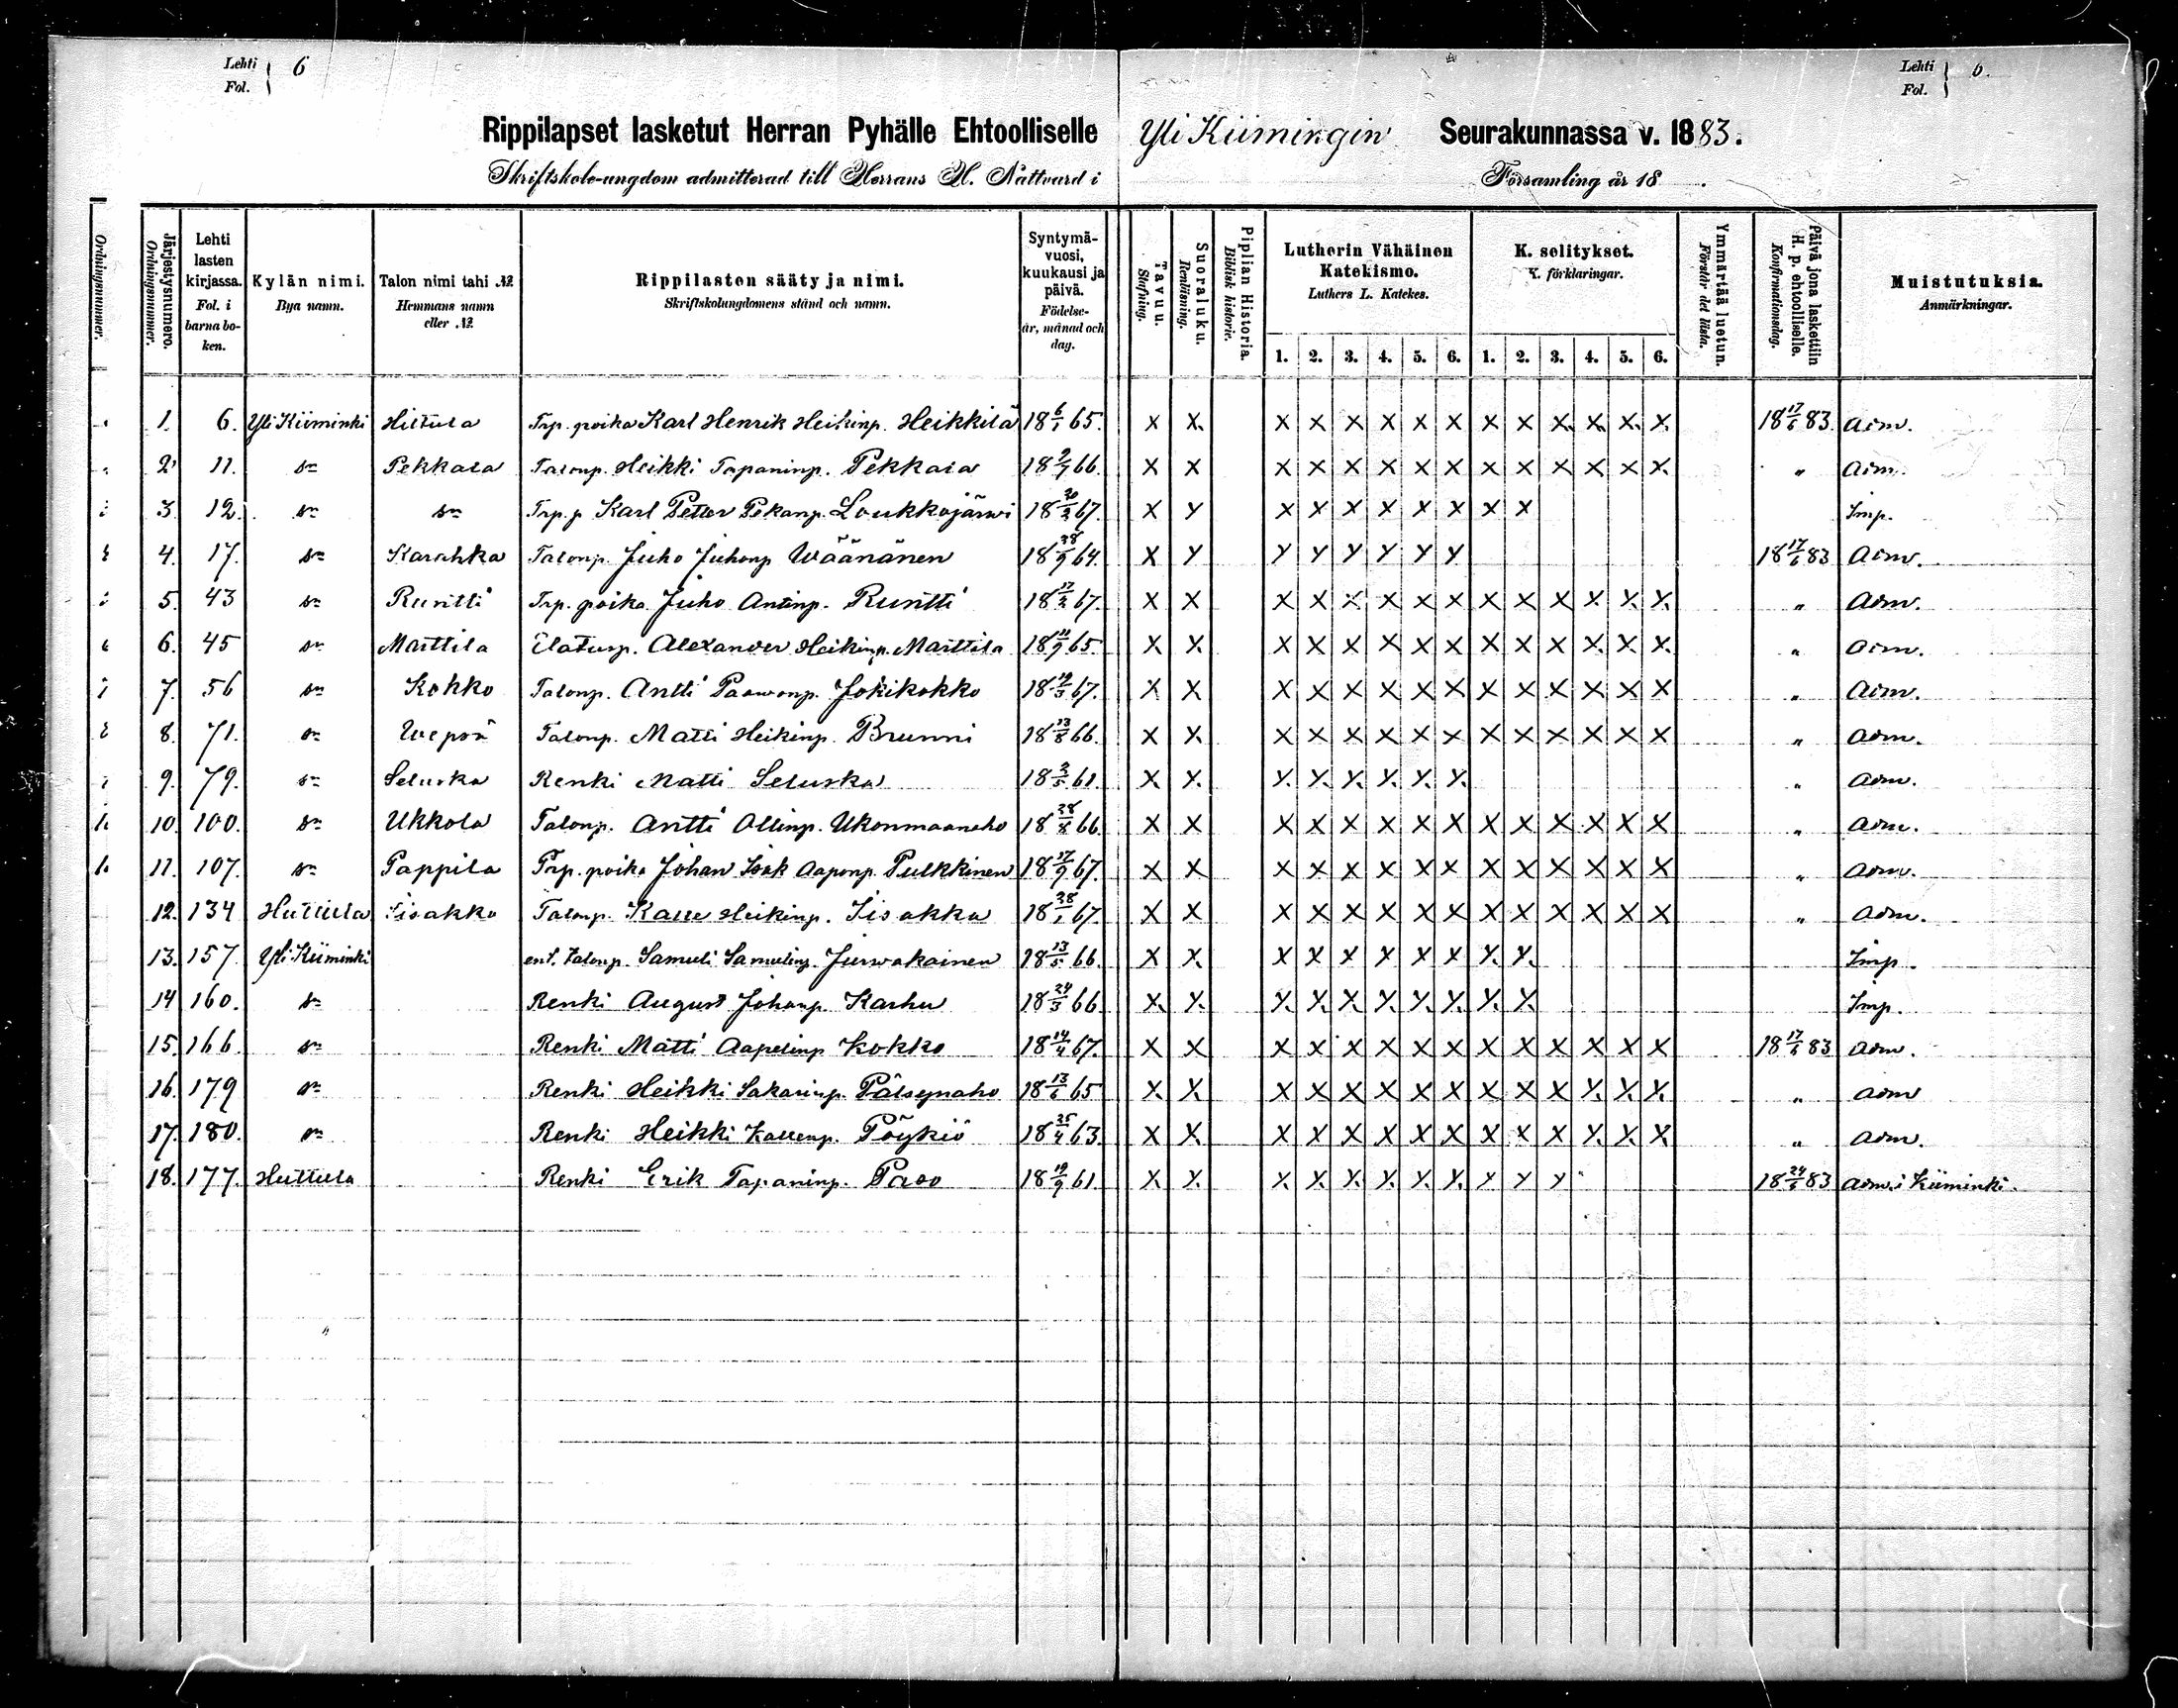 Lehti Fol. } 6
Lehti Fol. } 6.
Rippilapset lasketut Herran Pyhälle Ehtoolliselle Yli Kiimingin Seurakunnassa v. 1883.
Skriftskole-ungdom admitterad till Herrans H. Nattvard i Församling år 18 .
Ordningsnummer. Järjestysnumero. Ordningsnummer. Lehti lasten kirjassa. Fol. i barna bo-ken. Kylän nimi. Bya namn. Talon nimi tahi №. Hemmans namn eller №. Rippilasten sääty ja nimi. Skriftskolungdomens stånd och namn. Syntymä-vuosi, kuukausi ja päivä. Födelse-år, månad och dag. Tavuu. Stafning. Suoraluku. Renläsning. Piplian Historia. Biblisk historie. Lutherin Vähäinen Katekismo. Luthers L. Katekes. K. selitykset. K. förklaringar. Ymmärtää luetun. Förstår det lästa. Päivä jona laskettiin H. p. ehtoolliselle. Konfirmationsdag. Muistutuksia. Anmärkningar.
1. 2. 3. 4. 5. 6. 1. 2. 3. 4. 5. 6.
1. 6. Yli Kiiminki Hiltula Trp. poika Karl Henrik Heikinp. Heikkilä 18 6/1 65. X X. X X X X X X X X X. X. X. X. 18 17/6 83. Adm.
2 11. dn Pekkala Talonp. Heikki Tapaninp. Pekkala 18 2/7 66. X X X X X X X X X X X X X X. " Adm.
3. 12. dn dn Trp. p Karl Petter Pekanp. Loukkojärwi 18 20/2 67. X Y X X X X X X X X Imp.
4. 17. dn Karahka Talonp. Juho Juhonp Wäänänen 18 28/9 64. X Y Y Y Y Y Y Y 18 17/6 83 Adm.
5. 43 dn Runtti Trp. poika Juho Antinp. Runtti 18 17/2 67. X X X X X X X X X X X X. X. X. " Adm.
6. 45 dn Marttila Elätusp. Alexander Heikinp. Marttila 18 11/9 65. X X. X X X X X X X X X X. X X. " Adm.
7. 56 dn Kokko Talonp. Antti Paawonp. Jokikokko 18 19/3 67. X X X X X X X X X X X X X X " Adm.
8. 71. dn Wepsä Talonp. Matti Heikinp. Brunni 18 13/8 66. X X. X X X X X X X X X X X X " Adm.
9. 79. dn Seluska Renki Matti Seluska 18 3/5 61. X X. X. X. X. X. X. X. " Adm.
10. 100. dn Ukkola Talonp. Antti Ollinp. Ukonmaanaho 18 28/8 66. X X X X X X X X X X X X X X " Adm.
11. 107. dn Pappila Trp. poika Johan Isak Aaponp. Pulkkinen 18 17/9 67. X X X X X X X X X X X X X X " Adm.
12. 134 Huttula Iisakka Talonp. Kalle Heikinp. Iisakka 18 28/1 67. X X X X X X X X X X X X X X " Adm.
13. 157. Yli Kiiminki ent. talonp. Samuli Samulinp. Jurwakainen 18 13/5 66. X X. X X X X X X X. X. Imp.
14 160. dn Renki August Johanp. Karhu 18 24/3 66. X. X. X. X. X. X. X. X. X. X. Imp.
15. 166. dn Renki Matti Aapelinp Kokko 18 14/4 67. X X X X X X X X X X X X X X 18 17/6 83 Adm.
16. 179 dn Renki Heikki Sakarinp. Pätsynaho 18 13/6 65 X. X. X X X X X X X X X X. X. X. " Adm
17. 180. dn Renki Heikki Kallenp. Pöykiö 18 25/4 63. X X. X X X X X X X X X X. X. X. " Adm.
18. 177. Huttula Renki Erik Tapaninp. Paso 18 19/9 61. X X. X. X. X. X. X. X. X X X 18 24/6 83 Adm. i Kiiminki.